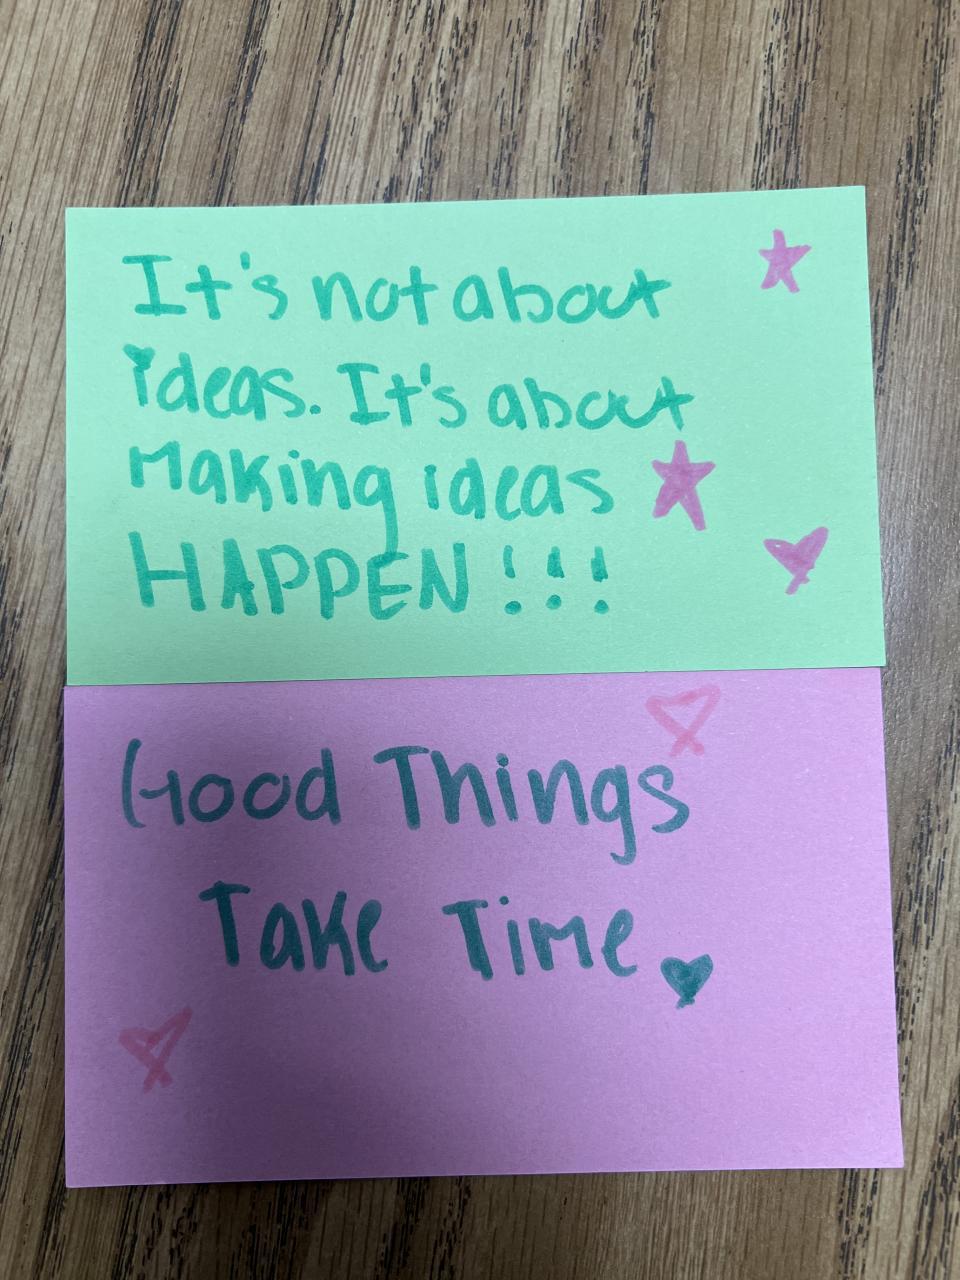 It's not about
ideas. It's about
Making ideas
HAPPEN!!!
Good Things
Take Time